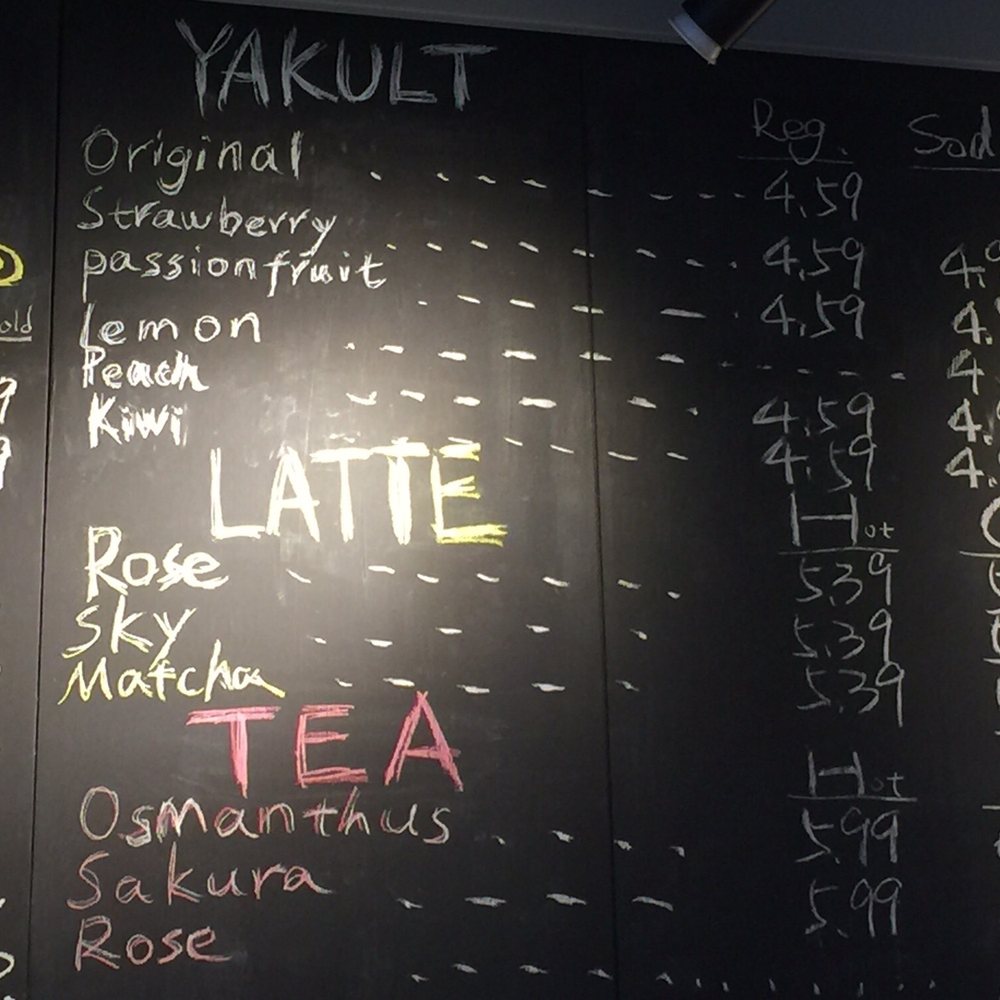 YAKULT
Reg.
Original 4.59
Strawberry 4.59
passionfruit 4.59
lemon
Peach 4.59
Kiwi 4.59
LATTE
Hot
Rose 5.39
Sky 5.39
Matcha 5.39
TEA
Hot
Osmanthus 5.99
Sakura 5.99
Rose